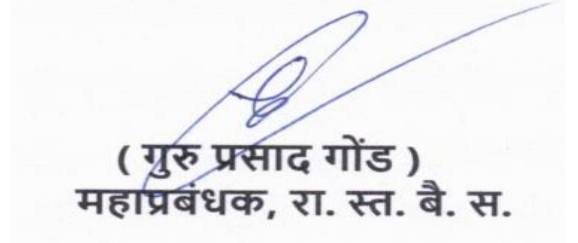 ( गुरु प्रसाद गोंड )
महाप्रबंधक, रा. स्त. बै. स.